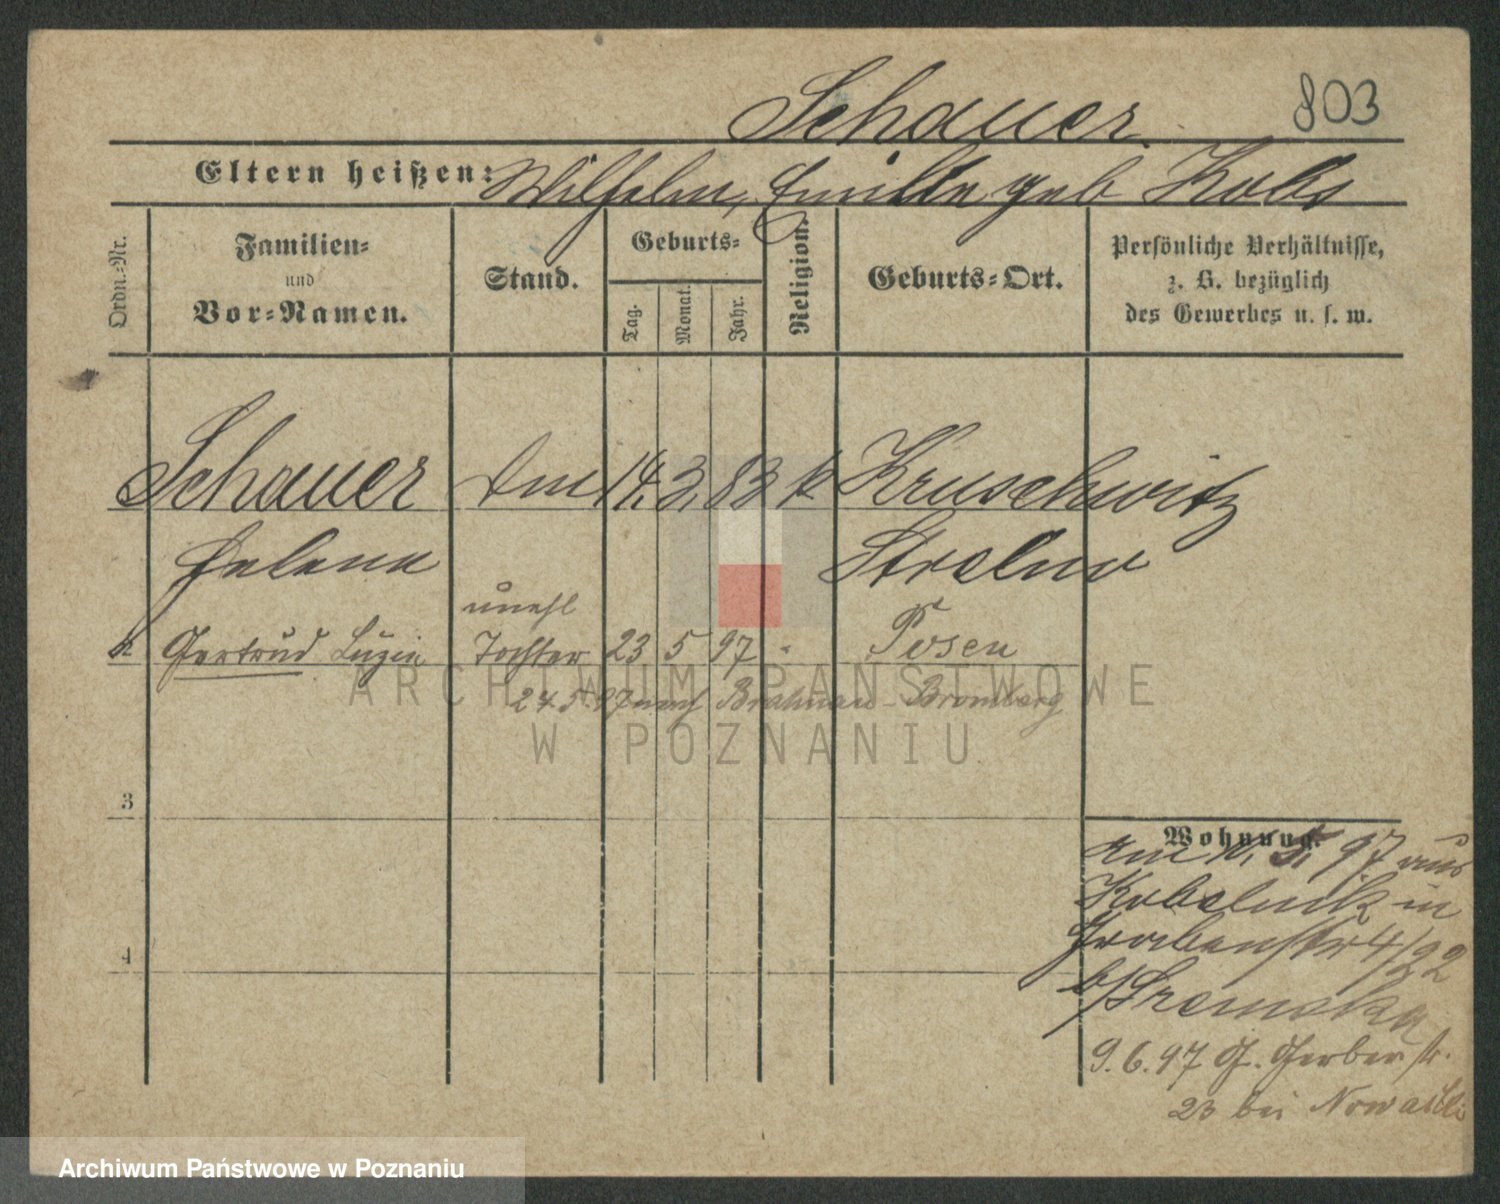 Schauer
803
Eltern heißen: Wilhelm, Emilie geb Kubs
Ordn.=Nr.
Familien=
und
Vor=Namen.
Stand.
Geburts=
Tag.
Monat.
Jahr.
Religion.
Geburts=Ort.
Persönliche Verhältnisse,
z. B. bezüglich
des Gewerbes u. s. w.
Schauer 14. 3. 83 k Kruschwitz
Helene Strelno
unehl
2 Gertrud Luzie Tochter 23 5 97 - Posen
24 5. 97 nach Brahnau - Bromberg
ARCHIWUM PAŃSTWOWE
W POZNANIU
3
4
Wohnung.
am 5. 97 aus
Kobelnik in
Grabenstr 4/92
b/Sremska
9.6.97 G. Gerber str.
23 bei Nowacki
Archiwum Państwowe w Poznaniu